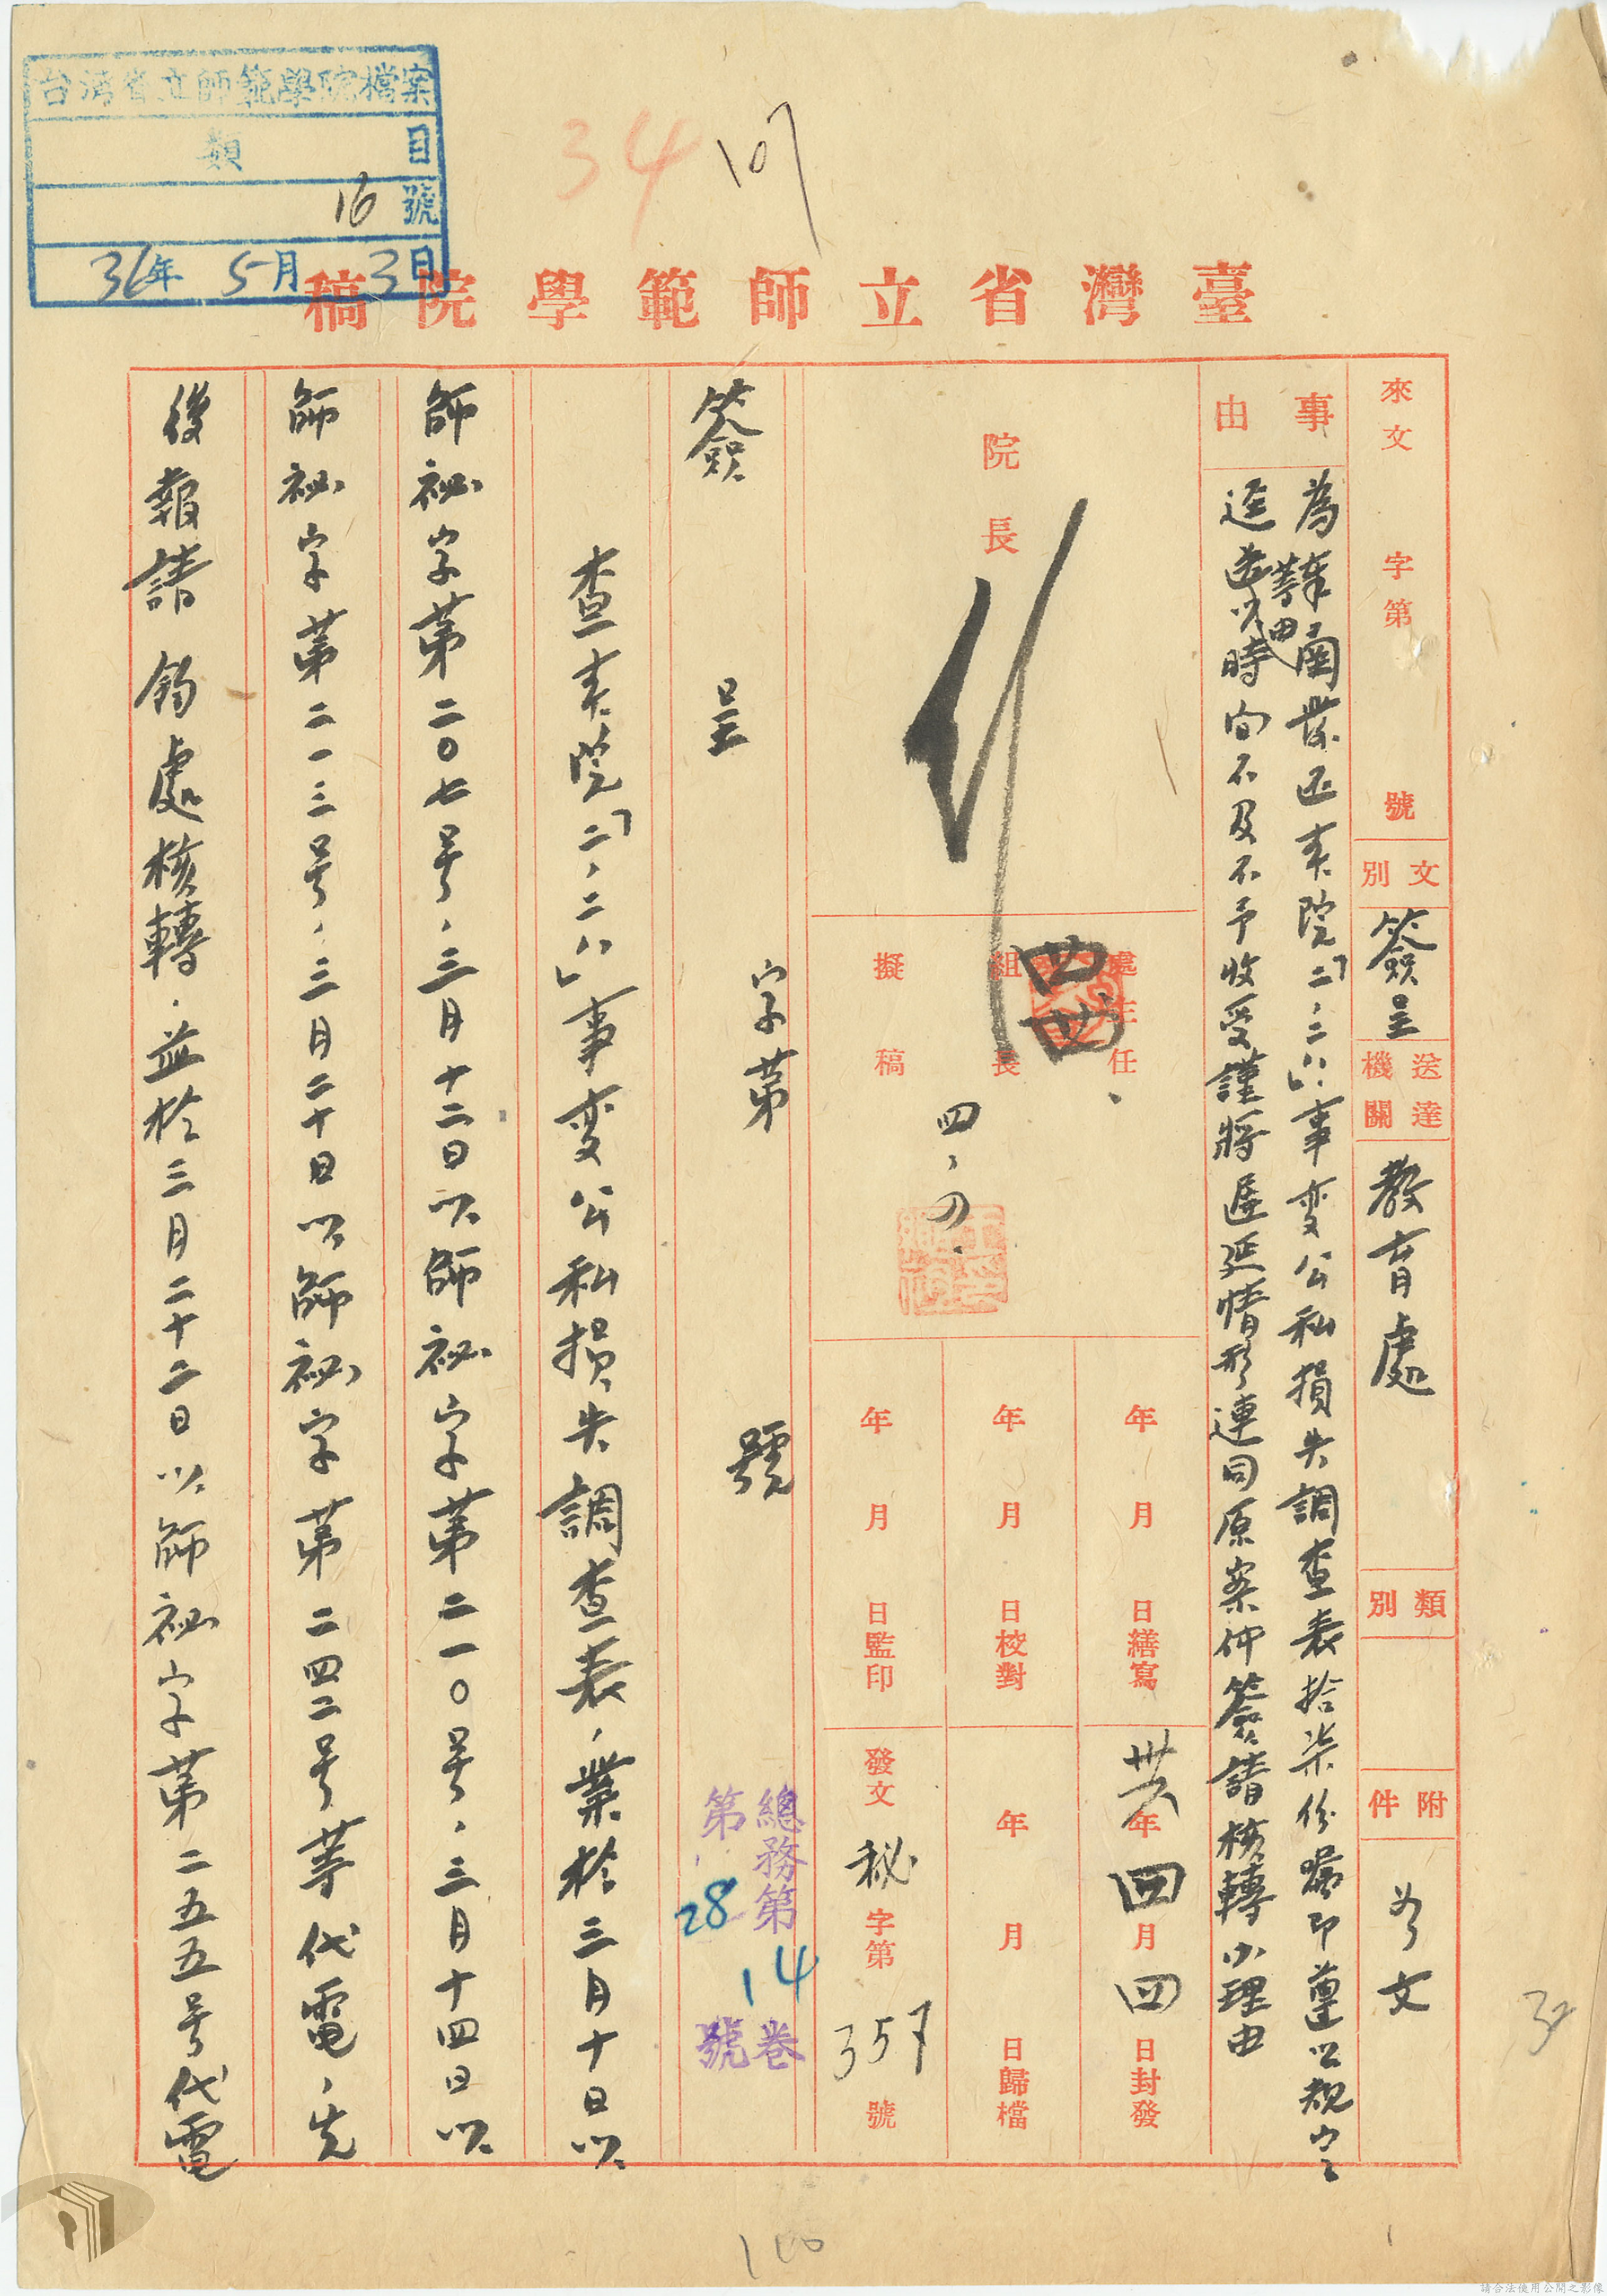 台湾省立師範學院檔案
類 目
16 號
36年 5月 3日
34
107
臺灣省立師範學院稿
來文 字第 號
文別 簽呈
送達機關 教育處
類別
附件 如文
事由
為 關業函本院「二、二八」事変公私損失調查表拾柒份囑即遵照規定
逕送以時間不及不予收受謹將遲延情形連同原案仲簽請核轉小理由
院長
處主任
組長
擬稿
四、
年 月 日繕寫
年 月 日校對
年 月 日監印
卅六年四月四日封發
年 月 日歸檔
發文秘字第357號
總務第14卷
第28號
簽 呈 字第 號
查本院「二、二八」事変公私損失調查表，業於三月十日以
師祕字第二〇七号，三月十二日以師祕字第二一〇号，三月十四日以
師祕字第二一三号，三月二十日以師祕字第二四二号等代電，先
後報請 鈞處核轉，並於三月二十二日以師祕字第二五五号代電
34
100
請合法使用公開之影像